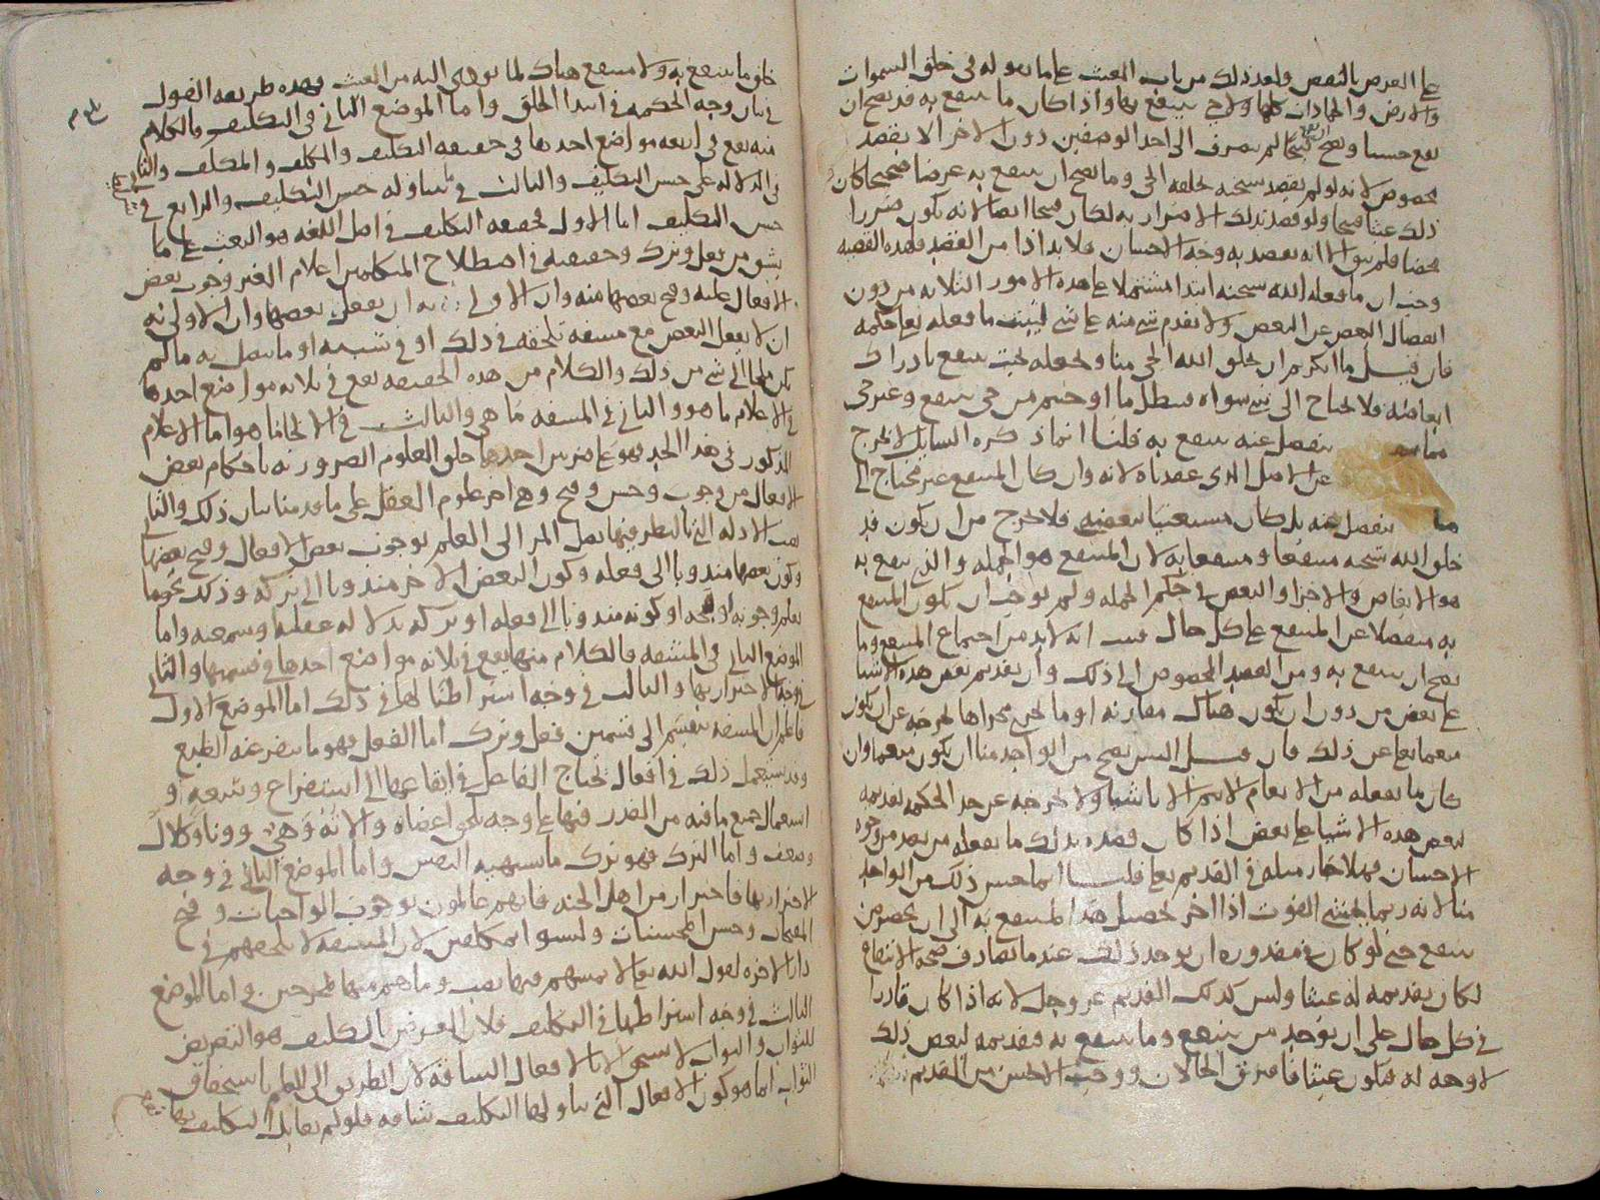 على الغرض بالنقص ولعد ذلك من باب العبث على ما نقوله في خلق السموات
والارض والجمادات كلها ولا حي ينتفع بها واذا كان ما ينتفع به قد يصح ان
يقع حسنا ويصح ان يقع قبيحا لم يصرف الى احد الوصفين دون الاخر الا بقصد
مخصوص لانه لو لم يقصد سبحنه بخلقه الحي وما يصح ان ينتفع به غرضا صحيحا كان
ذلك عبثا قبيحا ولو قصد بذلك الاضرار به لكان قبيحا ايضا لانه يكون ضررا
محضا فلم يبق الا انه يقصد به وجه الاحسان فلا بد اذا من القصد فلهذه القضية
وجب ان ما فعله الله سبحنه ابتدا مشتملا على هذه الامور الثلاثة من دون
انفصال البعض عن البعض ولا تقدم شي منه على شي ليثبت ما فعله تعالى حكمة
فان قيل ما انكرتم ان يخلق الله الحي منا ويجعله بحيث ينتفع بادراك
ابعاضه فلا يحتاج الى شي سواه فبطل ما اوجبتم من حي ينتفع وغير حي
مما ينفصل عنه ينتفع به قلنا ان ما ذكره السايل لا يخرج
عن الاصل الذي عقدناه لانه وان كان المنتفع غير محتاج الى
ما ينفصل عنه بل كان مستغنيا ببعضه فلا يخرج من ان يكون قد
خلق الله سبحنه منتفعا ومنتفعا به لان المنتفع هو الجملة والذي ينتفع به
هو الابعاض والاجزا والبعض في حكم الجملة ولم نوجب ان يكون المنتفع
به منفصلا عن المنتفع على كل حال فثبت انه لا بد من اجتماع المنتفع وما
يصح ان ينتفع به ومن القصد المخصوص الى ذلك وان تقديم بعض هذه الاشيا
على بعض من دون ان يكون هناك مقارنة او ما يجري مجراها يخرجه عن ان يكون
منعما تعالى عن ذلك فان قيل اليس يصح من الواحد منا ان يكون منعما وان
كان ما يفعله من الانعام لا يتم الا باشيا ولا يخرجه عن حد الحكمة تقديمه
لبعض هذه الاشيا على بعض اذا كان قصده بذلك ما يفعله من بعد من وجوه
الاحسان فهلا جاز مثله في القديم تعالى قلنا انما حسن ذلك من الواحد
منا لانه ربما يخشى الفوت اذا اخر تحصيل هذا المنتفع به الى ان يحضر من
ينتفع حتى لو كان في مقدوره ان يوجد ذلك عند ما يصادف صحة الانتفاع
لكان تقديمه له عبثا وليس كذلك القديم عز وجل لانه اذا كان قادرا
في كل حال على ان يوجد من ينتفع وما ينتفع به فتقديمه لبعض ذلك
لا وجه له فيكون عبثا فافترق الحالان ووجب الاحسن من القديم
خلق ما ينتفع به ولا منتفع هناك لما يوهي اليه من العبث فهذه طريقة القول
في بيان وجه الحكمة في ابتدا الخلق واما الموضع الثاني في التكليف فالكلام
منه يقع في اربعة مواضع احدها في حقيقة التكليف والمكلف والمكلف والثاني
في الدلالة على حسن التكليف والثالث في ما يتناوله حسن التكليف والرابع في
حسن التكليف اما الاول فحقيقة التكليف في اصل اللغة هو البعث على ما
يشق من فعل وترك وحقيقته في اصطلاح المتكلمين اعلام الغير وجوب بعض
الافعال عليه وقبح بعضها منه وان الاولى به ان يفعل بعضها وان الاولى به
ان لا يفعل البعض مع مشقة تلحقه في ذلك او في سببه او ما يتصل به ما لم
يكن ملجا الى شي من ذلك والكلام من هذه الحقيقة يقع في ثلاثة مواضع احدها
في الاعلام ما هو والثاني في المشقة ما هي والثالث في الالجا ما هو اما الاعلام
المذكور في هذا الحد فهو على ضربين احدهما خلق العلوم الضرورية باحكام بعض
الافعال من وجوب وحسن وقبح وهي اخر علوم العقل على ما قدمنا بيان ذلك والثاني
نصب الادلة التي بالنظر فيها يصل المر الى العلم بوجوب بعض الافعال وقبح بعضها
وكون بعضها مندوبا الى فعله وكون البعض الاخر مندوبا الى تركه وذلك نحو ما
يعلم وجوبه او قبحه او كونه مندوبا الى فعله او تركه بدلالة عقلية وسمعية واما
الموضع الثاني في المشقة فالكلام منها يقع في ثلاثة مواضع احدها في قسمتها والثاني
في وجه الاحتراز بها والثالث في وجه اشتراطنا لها في ذلك اما الموضع الاول
فاعلم ان المشقة تنقسم الى قسمين فعل وترك اما الفعل فهو ما ينفر عنه الطبع
وقد يستعمل ذلك في افعال يحتاج الفاعل في ايقاعها الى استفراغ وسعه او
استعمال جميع ما فيه من القدر فيها على وجه يلحق اعضاه والاته وهي وونا وكلال
وضعف واما الترك فهو ترك ما تشتهيه النفس واما الموضع الثاني في وجه
الاحتراز بها فاحتراز من اهل الجنة فانهم عالمون بوجوب الواجبات وقبح
المقبحات وحسن المحسنات وليسوا بمكلفين لان المشقة لا تلحقهم في
دار الاخرة لقول الله تعالى لا يمسهم فيها نصب وما هم منها بمخرجين واما الموضع
الثالث في وجه اشتراطها في التكليف فلان الغرض بالتكليف هو التعريض
للثواب والثواب لا يستحق الا بالافعال الشاقة لان الطريق الى العلم باستحقاق
الثواب انما هو كون الافعال التي تناولها التكليف شاقة فلو لم يقابل التكليف